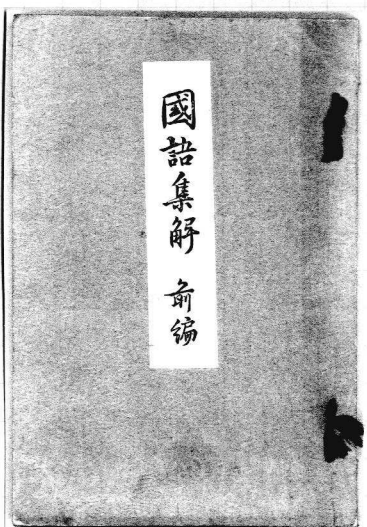 國語集解 前編